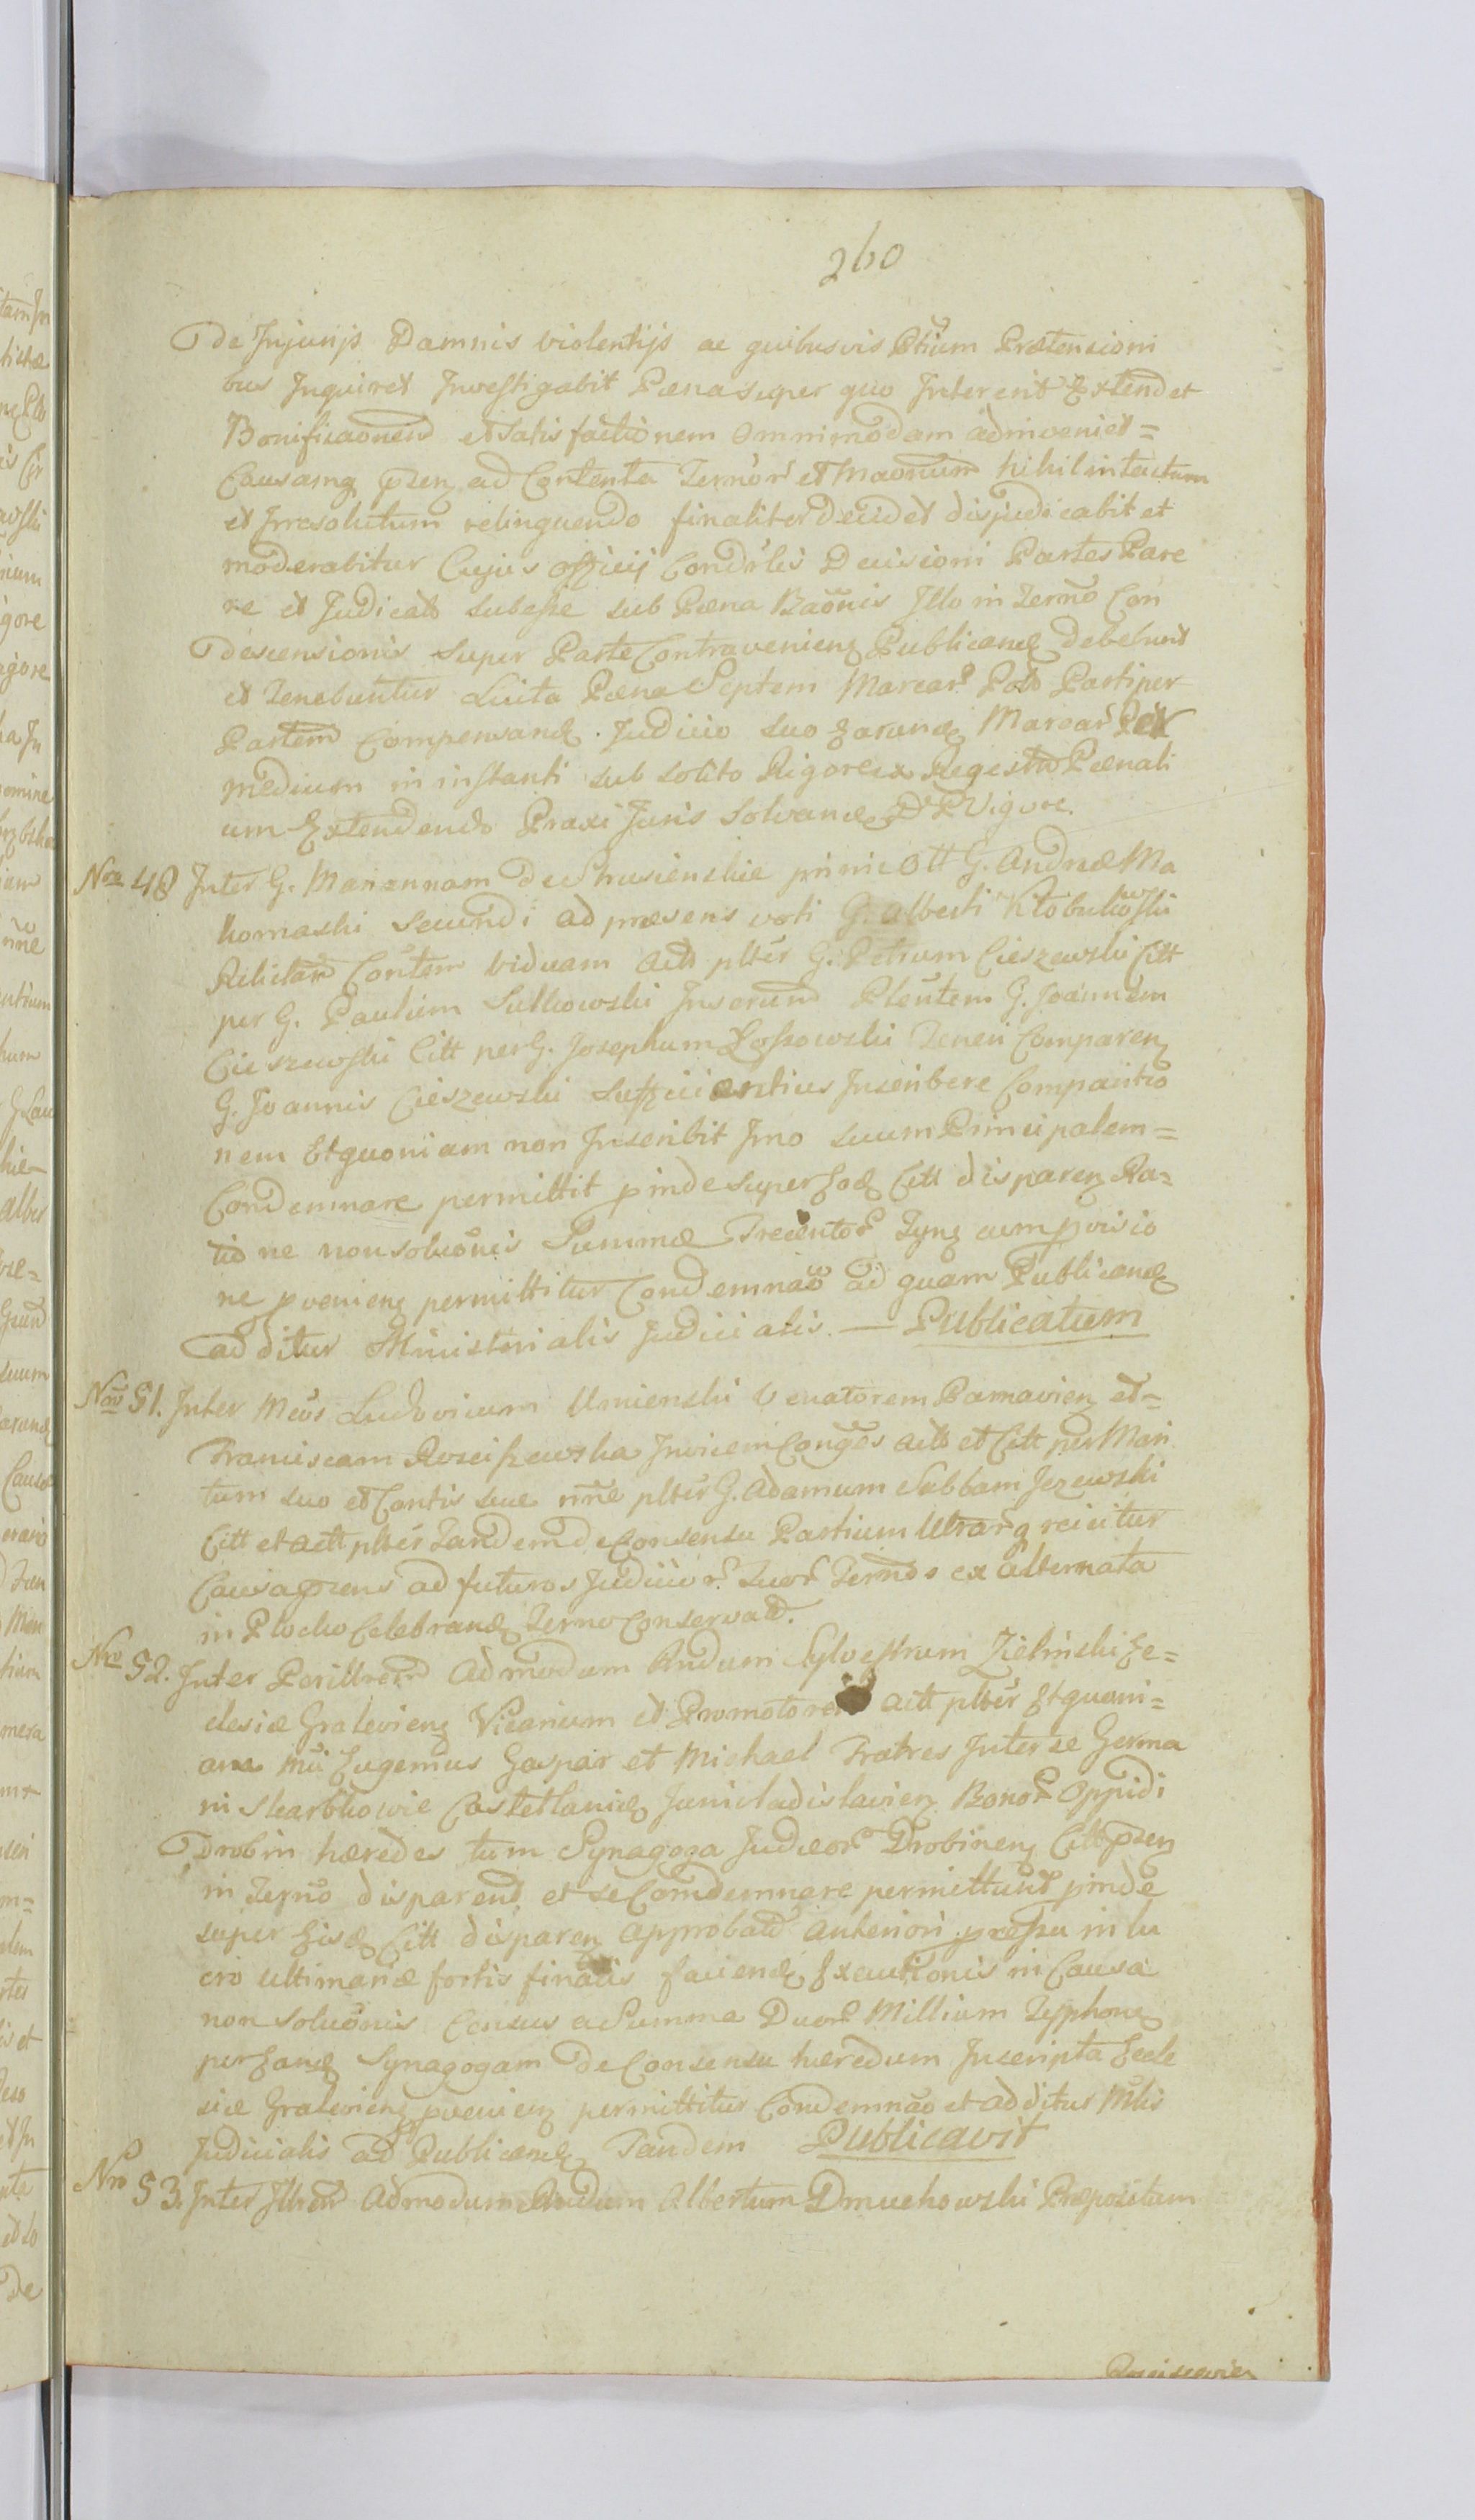 260
De Injurijs Damnis violentijs ac quibusvis Ptium Prætensioni
bus Inquiret Investigabit Pœna super quo Intererit Extendet
Bonificaonem et Satisfactionem Omnimodam adinveniet =
Causamq pzen ad Contenta Termor et Maonum Nihil intactum
et Irresolutum relinquendo finaliter decidet disjudicabit et
moderabitur Cujus Officij Condrlis Decisioni Partes Pare
re et Judicato Subesse sub Pœna Baonis Illo in Termo Con
descensionis Super Parte Contravenien Publicand debebunt
et Tenebuntur Luita Pœna Septem Marcar Pold Parti per
Partem Compensand. Judicio suo Earund Marcar
medium in instanti sub solito Rigore ex Regestro Pœnali
um Extendendo Praxi Juris Solvand D P Vigore.
Nro 48 Inter G. Mariannam De Strusienskie primi Ott G. Andreæ Ma
komaski Secundi ad præsens voti G. Alberti Kłobukowski
Relictam Contem Viduam Actt plter G. Petrum Cieszewski Citt
per G. Paulum Sutkowski Inserund Pltentem G. Joannem
Cieszewski Citt per G. Josephum Łossowski Teneri Comparen
G. Joannis Cieszewski Sufficientius Inscribere Comparitio
nem Et quoniam non Inscribit Imo Suum Principalem =
Condemnare permittit pinde super Eod Citt disparen Ra=
tione non Soluonis Summæ Trecentor Tynf cum pvisio
ne pvenien permittitur Condemnao ad quam Publicand
additur Ministerialis Judicialis. — Publicatum
Nro 51. Inter Mcos Ludovicum Umienski Venatorem Parnavien et =
Franciscam Rosciszewska Invicem Conges Actt et Citt per Mari
tum suo et Contis suæ nne plter G. Adamum Sabbam Jezewski
Citt et Actt plter Tandem de Consensu Partium Utrarq reicitur
Causa pzens ad futuros Judicior Suor Termos ex alternata
in Plocko Celebrand Termo Conservato.
Nro 52. Inter Perillrem Admodum Rndum Sylvestrum Zielinski Ec=
clesiæ Gralevien Vicarium et Promotorem Actt plter Et quoni=
am Mci Eugenius Gaspar et Michael Fratres Inter se Germa
ni Skarbkowie Castellanid Juniwladislavien Bonor Oppidi
Drobin hæredes tum Synagoga Judæor Drobinen Citt pzen
in Termo disparend et se Condemnare permittunt pinde
super Eisd Citt disparen approbato Anteriori pressu in lu
cro ultimariæ fortis finalis faciend Executionis in Causa
non Soluonis Census a Summa Duor Millium Typhon
per Eand Synagogam De Consensu hæredum Inscripta Eccle
siæ Gralevien pvenien permittitur Condemnao et additur Mlis
Judicialis ad Publicand Tandem Publicavit
Nro 53. Inter Illrem Admodum Rndum Albertum Dmuchowski Præpositum